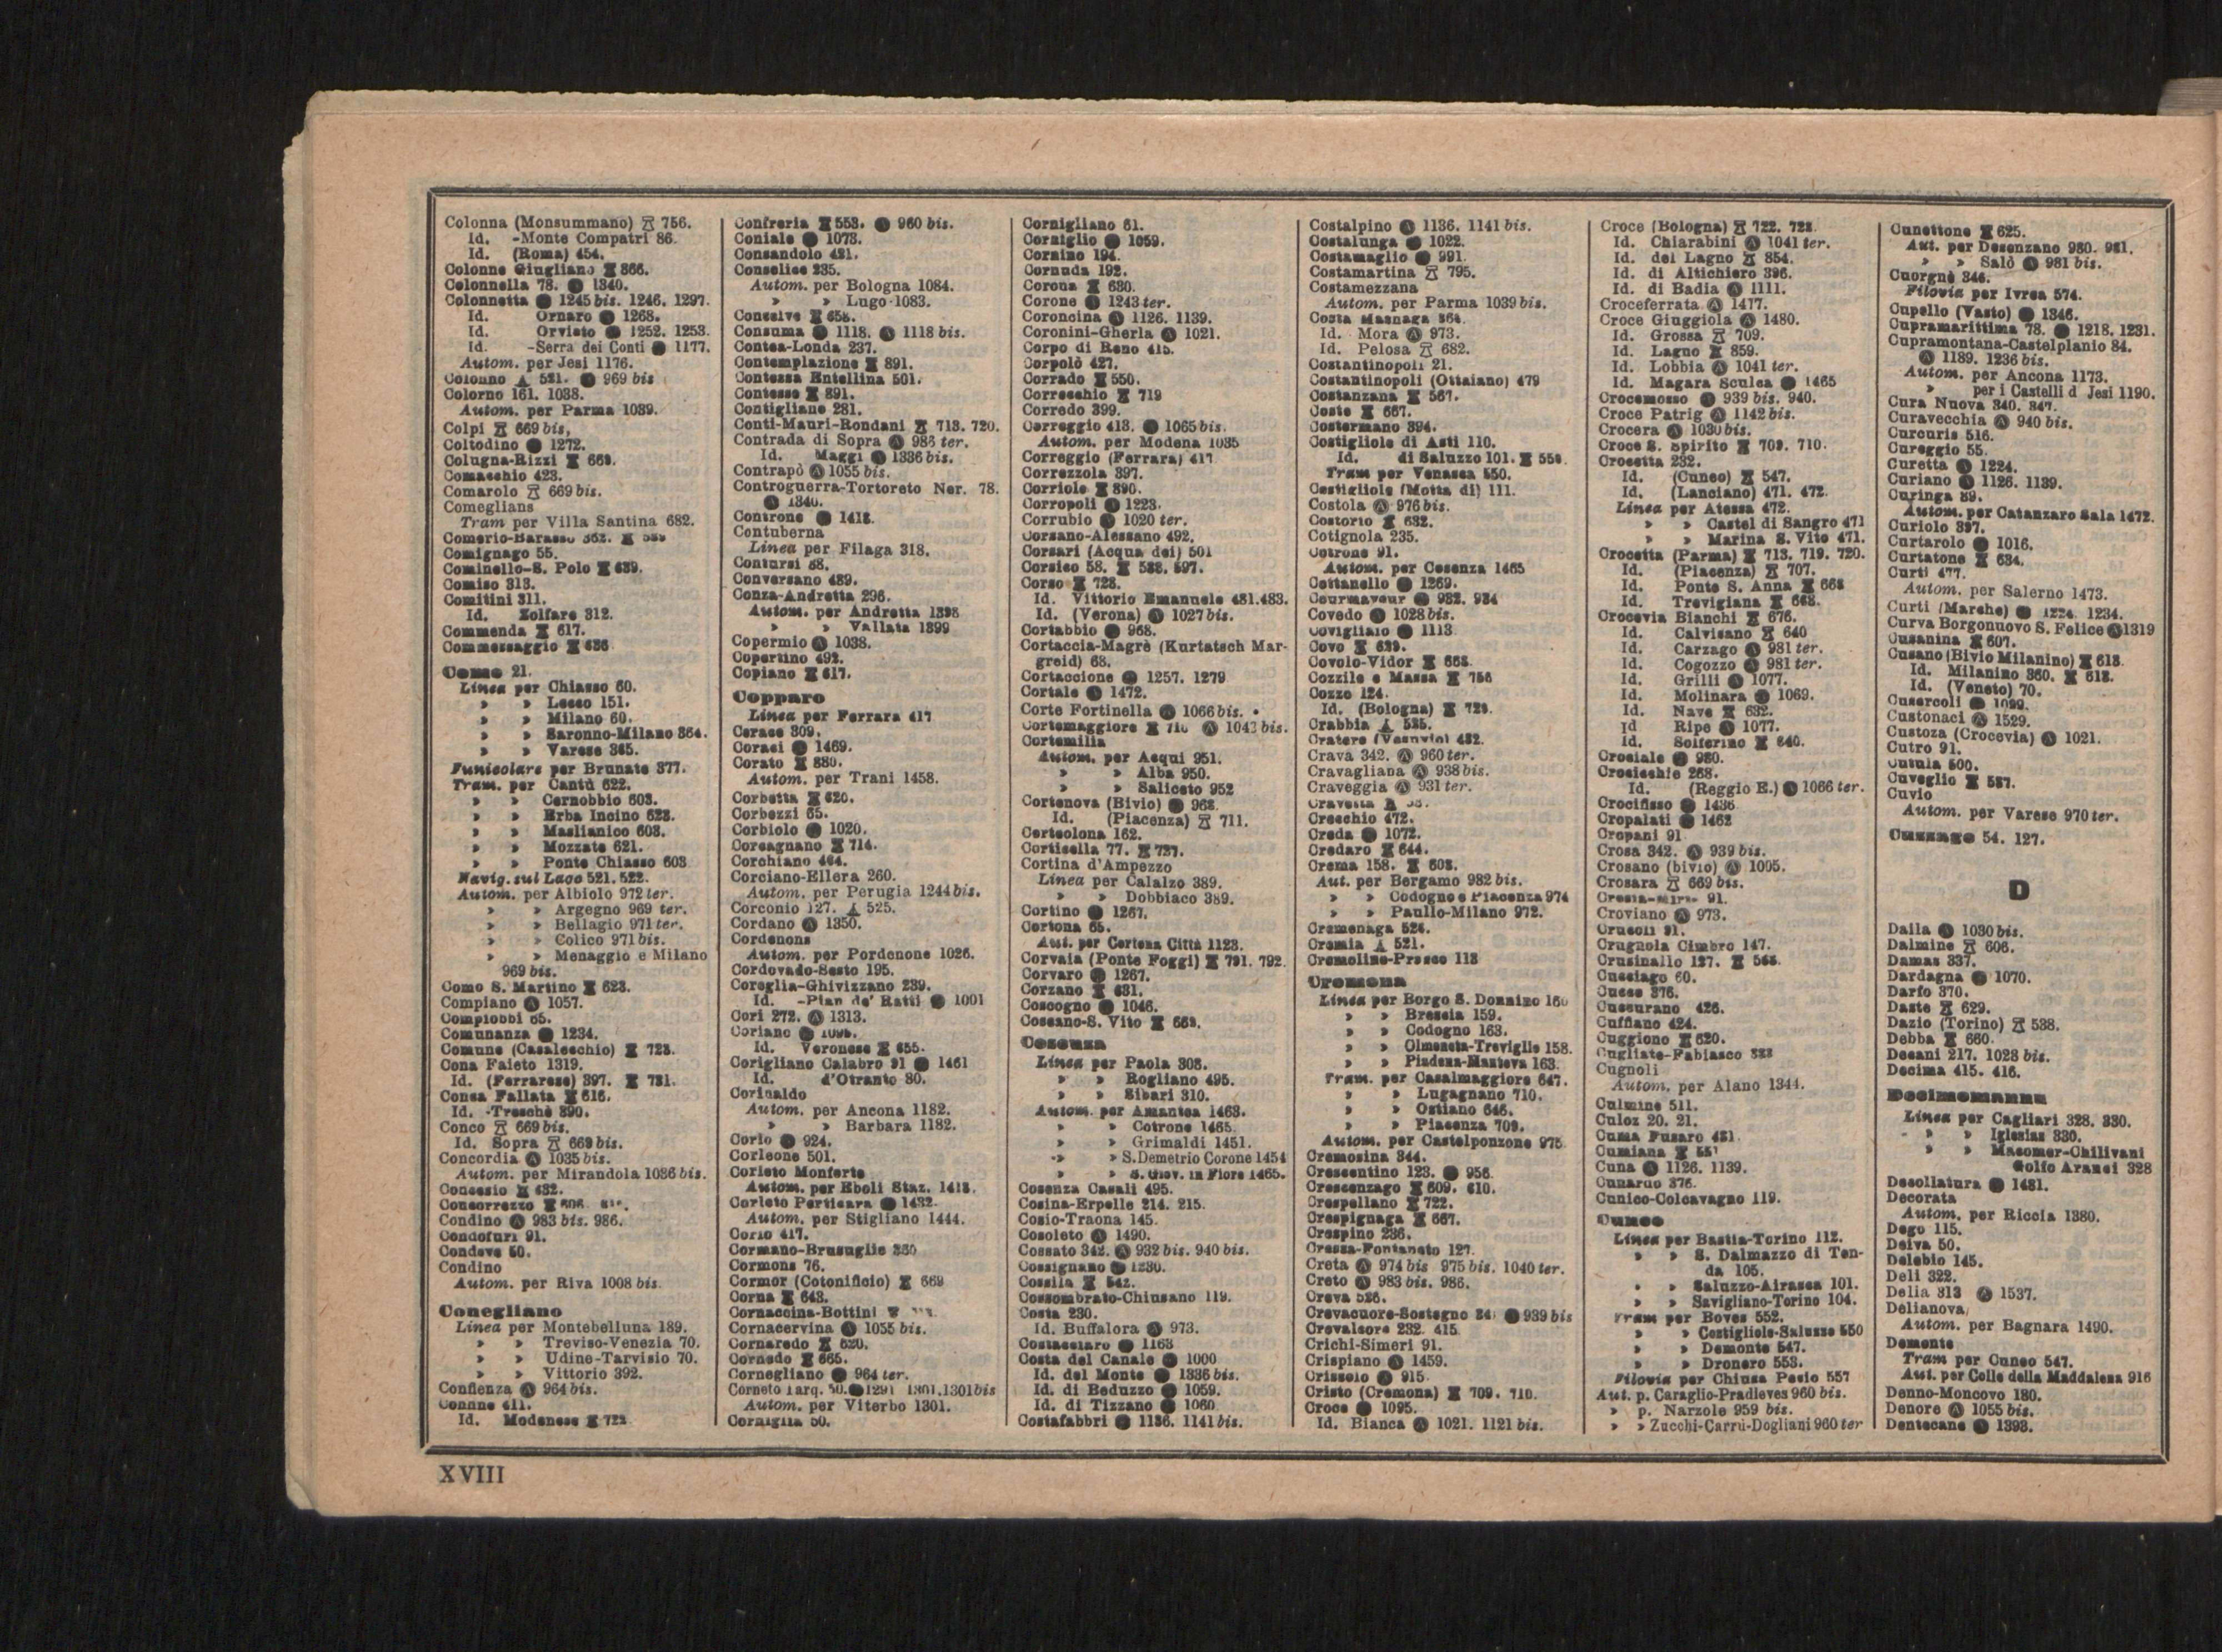 Colonna (Monsummano) 756.
Id. -Monte Compatri 86.
Id. (Roma) 454.
Colonne Giugliano 866.
Colonnella 78. 1340.
Colonnetta 1245 bis. 1246. 1297.
Id. Ornaro 1268.
Id. Orvieto 1252. 1253.
Id. -Serra dei Conti 1177.
Autom. per Jesi 1176.
969 bis
Colorno 161. 1038.
Autom. per Parma 1039.
Colpi 669 bis,
Coltodino 1272.
Colugna-Rizzi 669.
Comacchio 423.
Comarolo 669 bis.
Comeglians
Tram per Villa Santina 682.
Comerio-Barasso 362.
Comignago 55.
Cominello-S. Polo 639.
Comiso 313.
Comitini 311.
Id. Zolfare 312.
Commenda 617.
Commessaggio 636
Como 21.
Linea per Chiasso 60.
» » Lecco 151.
» » Milano 60.
» » Saronno-Milano 364.
» » Varese 365.
Funicolare per Brunate 377.
Tram. per Cantù 622.
» » Cernobbio 603.
» » Erba Incino 623.
» » Maslianico 603.
» » Mozzate 621.
» » Ponte Chiasso 603
Navig. sul Lago 521. 522.
Autom. per Albiolo 972 ter.
» » Argegno 969 ter.
» » Bellagio 971 ter.
» » Colico 971 bis.
» » Menaggio e Milano
969 bis.
Como S. Martino 623.
Compiano 1057.
Compiobbi 65.
Comunanza 1234.
Comune (Casalecchio) 723.
Cona Faleto 1319.
Id. (Ferrarese) 397. 731.
Conca Fallata 616.
Id. -Treschè 390.
Conco 669 bis.
Id. Sopra 669 bis.
Concordia 1035 bis.
Autom. per Mirandola 1036 bis.
Concesio 632.
Concorrezzo
Condino 983 bis. 986.
Condofuri 91.
Condove 50.
Condino
Autom. per Riva 1008 bis.
Conegliano
Linea per Montebelluna 189.
» » Treviso-Venezia 70.
» » Udine-Tarvisio 70.
» » Vittorio 392.
Confienza 964 bis.
411.
Id. Modenese 722
Confreria 553. 960 bis.
Coniale 1073.
Consandolo 421.
Conselice 235.
Autom. per Bologna 1084.
» » Lugo 1083.
Conselve 658.
Consuma 1118. 1118 bis.
Contea-Londa 237.
Contemplazione 891.
Contessa Entellina 501.
Contesse 891.
Contigliano 281.
Conti-Mauri-Rondani 713. 720.
Contrada di Sopra 986 ter.
Id. Maggi 1336 bis.
Contrapò 1055 bis.
Controguerra-Tortoreto Ner. 78.
1340.
Controne 1413.
Contuberna
Linea per Filaga 318.
Contursi 88.
Conversano 489.
Conza-Andretta 296.
Autom. per Andretta 1398
» » Vallata 1399
Copermio 1038.
Copertino 492.
Copiano 617.
Copparo
Linea per Ferrara 417
Corace 309.
Coraci 1469.
Corato 880.
Autom. per Trani 1458.
Corbetta 620.
Corbezzi 65.
Corbiolo 1020.
Corcagnano 714.
Corchiano 464.
Corciano-Ellera 260.
Autom. per Perugia 1244 bis.
Corconio 127. 525.
Cordano 1350.
Cordenons
Autom. per Pordenone 1026.
Cordovado-Sesto 195.
Coreglia-Ghivizzano 239.
Id. -Pian de' Ratti 1001
Cori 272. 1313.
Coriano
Id. Veronese 655.
Corigliano Calabro 91 1461
Id. d'Otranto 80.
Corinaldo
Autom. per Ancona 1182.
» » Barbara 1182.
Corio 924.
Corleone 501.
Corleto Monforte
Autom. per Eboli Staz. 1413.
Corleto Perticara 1432.
Autom. per Stigliano 1444.
Corlo 417.
Cormano-Brusuglio 360
Cormons 76.
Cormor (Cotonificio) 669
Corna 643.
Cornaccina-Bottini
Cornacervina 1055 bis.
Cornaredo 620.
Cornedo 665.
Cornegliano 964 ter.
Corneto Tarq. 50. 1291 1301.1301 bis
Autom. per Viterbo 1301.
Corniglia 50.
Cornigliano 61.
Corniglio 1059.
Cornino 194.
Cornuda 192.
Corona 680.
Corone 1243 ter.
Coroncina 1126. 1139.
Coronini-Gherla 1021.
Corpo di Reno 415.
Corpolò 427.
Corrado 550.
Correcchio 719
Corredo 399.
Correggio 413. 1065 bis.
Autom. per Modena 1035
Correggio (Ferrara) 417
Correzzola 397.
Corriolo 890.
Corropoli 1223.
Corrubio 1020 ter.
Corsano-Alessano 492.
Corsari (Acqua dei) 501
Corsico 58. 588. 597.
Corso 728.
Id. Vittorio Emanuele 481.483.
Id. (Verona) 1027 bis.
Cortabbio 968.
Cortaccia-Magrè (Kurtatsch Mar-
greid) 68.
Cortaccione 1257. 1279
Cortale 1472.
Corte Fortinella 1066 bis.
Cortemaggiore 710 1043 bis.
Cortemilia
Autom. per Acqui 951.
» » Alba 950.
» » Saliceto 952
Cortenova (Bivio) 968.
Id. (Piacenza) 711.
Corteolona 162.
Corticella 77. 737.
Cortina d'Ampezzo
Linea per Calalzo 389.
» » Dobbiaco 389.
Cortino 1267.
Cortona 65.
Aut. per Cortona Città 1123.
Corvaia (Ponte Foggi) 791. 792.
Corvaro 1267.
Corzano 631.
Coscogno 1046.
Cossano-S. Vito 669.
Cosenza
Linea per Paola 308.
» » Rogliano 495.
» » Sibari 310.
Autom. per Amantea 1463.
» » Cotrone 1465.
» » Grimaldi 1451.
» » S. Demetrio Corone 1454
» » S. Giov. in Fiore 1465.
Cosenza Casali 495.
Cosina-Erpelle 214. 215.
Cosio-Traona 145.
Cosoleto 1490.
Cossato 342. 932 bis. 940 bis.
Cossignano 1230.
Cossila 542.
Cossombrato-Chiusano 119.
Costa 230.
Id. Buffalora 973.
Costacciaro 1163
Costa del Canale 1000
Id. del Monte 1336 bis.
Id. di Beduzzo 1059.
Id. di Tizzano 1060
Costafabbri 1136. 1141 bis.
Costalpino 1136. 1141 bis.
Costalunga 1022.
Costamaglio 991.
Costamartina 795.
Costamezzana
Autom. per Parma 1039 bis.
Costa Masnaga 364.
Id. Mora 973.
Id. Pelosa 682.
Costantinopoli 21.
Costantinopoli (Ottaiano) 479
Costanzana 567.
Coste 667.
Costermano 394.
Costigliole di Asti 110.
Id. di Saluzzo 101. 550.
Tram per Venasca 550.
Costigliole (Motta di) 111.
Costola 976 bis.
Costorio 632.
Cotignola 235.
Cotrone 91.
Autom. per Cosenza 1465
Cottanello 1269.
Courmayeur 932. 934
Covedo 1028 bis.
Covigliaio 1113
Covo 639.
Covolo-Vidor 668.
Cozzile e Massa 756
Cozzo 124.
Id. (Bologna) 729.
Crabbia 525.
Cratere (Vesuvio) 482.
Crava 342. 960 ter.
Cravagliana 938 bis.
Craveggia 931 ter.
Crecchio 472.
Creda 1072.
Credaro 644.
Crema 158. 603.
Aut. per Bergamo 982 bis.
» » Codogno e Piacenza 974
» » Paullo-Milano 972.
Cremenaga 524.
Cremia 521.
Cremolino-Prasco 113
Cremona
Linea per Borgo S. Donnino 160
» » Brescia 159.
» » Codogno 163.
» » Olmeneta-Treviglio 158.
» » Piadena-Mantova 163.
Tram. per Casalmaggiore 647.
» » Lugagnano 710.
» » Ostiano 646.
» » Piacenza 709.
Autom. per Castelponzone 975
Cremosina 344.
Crescentino 123. 956.
Crescenzago 609. 610.
Crespellano 722.
Crespignaga 667.
Crespino 236.
Cressa-Fontaneto 127.
Creta 974 bis 975 bis. 1040 ter.
Creto 983 bis. 986.
Creva 526.
Crevacuore-Sostegno 939 bis
Crevalcore 232. 415.
Crichi-Simeri 91.
Crispiano 1459.
Crissolo 915.
Cristo (Cremona) 709. 710.
Croce 1095.
Id. Bianca 1021. 1121 bis.
Croce (Bologna) 722. 723.
Id. Chiarabini 1041 ter.
Id. del Lagno 854.
Id. di Altichiero 396.
Id. di Badia 1111.
Croceferrata 1417.
Croce Giuggiola 1480.
Id. Grossa 709.
Id. Lagno 859.
Id. Lobbia 1041 ter.
Id. Magara Sculca 1465
Crocemosso 939 bis. 940.
Croce Patrig 1142 bis.
Crocera 1030 bis.
Croce S. Spirito 709. 710.
Crocetta 232.
Id. (Cuneo) 547.
Id. (Lanciano) 471. 472.
Linea per Atessa 472.
» » Castel di Sangro 471
» » Marina S. Vito 471.
Crocetta (Parma) 713. 719. 720.
Id. (Piacenza) 707.
Id. Ponte S. Anna 668
Id. Trevigiana 668.
Crocevia Bianchi 676.
Id. Calvisano 640
Id. Carzago 981 ter.
Id. Cogozzo 981 ter.
Id. Grilli 1077.
Id. Molinara 1069.
Id. Nave 632.
Id Ripe 1077.
Id. Solferino 640.
Crociale 980.
Crocicchie 268.
Id. (Reggio E.) 1066 ter.
Crocifisso 1436
Cropalati 1462
Cropani 91
Crosa 342. 939 bis.
Crosano (bivio) 1005.
Crosara 669 bis.
91.
Croviano 973.
Crucoli 91.
Crugnola Cimbro 147.
Crusinallo 127. 565.
Cucciago 60.
376.
426.
Cuffiano 424.
Cuggiono 620.
Cugliate-Fabiasco
Cugnoli
Autom. per Alano 1344.
Culmine 511.
Culoz 20. 21.
Cuma Fusaro 481
Cumiana 551
Cuna 1126. 1139.
376.
Cunico-Colcavagno 119.
Cuneo
Linea per Bastia-Torino 112.
» » S. Dalmazzo di Ten-
da 105.
» » Saluzzo-Airasca 101.
» » Savigliano-Torino 104.
Tram per Boves 552.
» » Costigliole-Saluzzo 550
» » Demonte 547.
» » Dronero 553.
Filovia per Chiusa Pesio 557
Aut. p. Caraglio-Pradleves 960 bis.
» p. Narzole 959 bis.
» » Zucchi-Carrù-Dogliani 960 ter
Cunettone 625.
Aut. per Desenzano 980. 981.
» » Salò 981 bis.
Cuorgnè 346.
Filovia per Ivrea 574.
Cupello (Vasto) 1346.
Cupramarittima 78. 1218. 1231.
Cupramontana-Castelplanio 84.
1189. 1236 bis.
Autom. per Ancona 1173.
» per i Castelli d Jesi 1190.
Cura Nuova 340. 347.
Curavecchia 940 bis.
Curcuris 516.
Cureggio 55.
Curetta 1224.
Curiano 1126. 1139.
Curinga 89.
Autom. per Catanzaro Sala 1472.
Curiolo 397.
Curtarolo 1016.
Curtatone 634.
Curti 477.
Autom. per Salerno 1473.
Curti (Marche) 1224. 1234.
Curva Borgonuovo S. Felice 1319
Cusanina 607.
Cusano (Bivio Milanino) 613.
Id. Milanino 360. 613.
Id. (Veneto) 70.
Cusercoli 1099.
Custonaci 1529.
Custoza (Crocevia) 1021.
Cutro 91.
Cutula 500.
Cuveglio 587.
Cuvio
Autom. per Varese 970 ter.
Cuzzago 54. 127.
D
Daila 1030 bis.
Dalmine 606.
Damas 337.
Dardagna 1070.
Darfo 370.
Daste 629.
Dazio (Torino) 538.
Debba 660.
Decani 217. 1028 bis.
Decima 415. 416.
Decimomannu
Linea per Cagliari 328. 330.
» » Iglesias 330.
» » Macomer-Chilivani
Golfo Aranci 328
Decollatura 1481.
Decorata
Autom. per Riccia 1380.
Dego 115.
Deiva 50.
Delebio 145.
Deli 322.
Delia 313 1537.
Delianova
Autom. per Bagnara 1490.
Demonte
Tram per Cuneo 547.
Aut. per Colle della Maddalena 916
Denno-Moncovo 180.
Denore 1055 bis.
Dentecane 1393.
XVIII